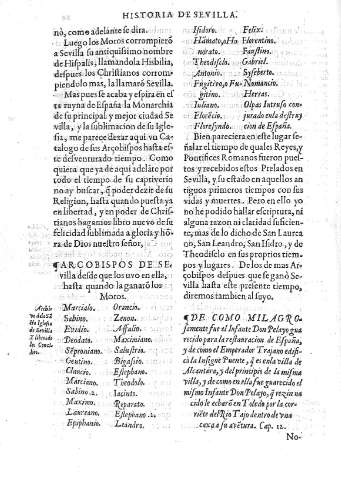 HISTORIA DE SEVILLA.
nò, como adelante se dira.
Luego los Moros corrompierõ
a Seuilla su antiquissimo nombre
de Hispalis, llamandola Hisbilia,
despues los Christianos corrom-
piendolo mas, la llamarõ Seuilla.
Mas pues se acaba y espira en el
ta rayna de España la Monarchia
de su principal y mejor ciudad Se
uilla, y la sublimacion de su Igle-
sia, me parece alegar aqui vn Ca
talogo de sus Arçobispos hasta es-
te desuenturado tiempo. Como
quiera que ya de aqui adelãte por
todo el tiempo de su captiuerio
no ay buscar, q̃ poder dezir de su
Religion, hasta quando puesta ya
en libertad, y en poder de Chris-
tianos hagamos libro nueuo de su
felicidad sublimada a gloria y hõ-
ra de Dios nuestro señor.
¶ ARCOBISPOS DE SE-
uilla desde que los vuo en ella,
hasta quando la ganarõ los
Moros.
Archiuo
de la Sta
Iglesia
de Seuilla
Marcialo.
Sabino.
Euidio.
Deodato.
Sẽproniano.
Gentino.
Clancio.
Marciano.
Sabino. 2.
Maximo.
Laureano.
Epiphanio.
Oroncio.
Zenon.
Assalio.
Maximiano.
Salustro.
Bigasio.
Estephano.
Theodolo.
Iacinto.
Reparato.
Estephano 2.
Leandro.
Isidoro.
Hũnato, o Ho
norato.
Theodisclo.
Antonio.
Fugitiro, o Fu
gitino.
Iuliano.
Florécio.
Floresindo.
Felix.
Florentino.
Faustino.
Gabriel.
Syseberto.
Nonnancio.
Herras.
Olpas Intruso con-
jurado en la destruy
cion de España.
Bien pareciera en este lugar se
ñalar el tiempo de quales Reyes, y
Pontifices Romanos fueron pues-
tos y recebidos estos Prelados en
Seuilla, y su estado en aquellos an
tiguos primeros tiempos con sus
vidas y muertes. Pero en ello yo
no he podido hallar escriptura, ni
alguna razon de claridad suficien-
te, mas de lo dicho de San Laurea
no, San Leandro, San Isidro, y de
Theodisclo en sus proprios tiem-
pos y lugares. De los de mas Ar-
çobispos despues que se ganò Se-
uilla hasta este presente tiempo,
diremos tambien al suyo.
¶ DE COMO MILAGRO
samente fue el Infante Don Pelayo gua
recido para la restauracion de España,
y de como el Emperador Trajano edifi-
cò la Insigne Puente, q̃ es en la villa de
Alcantara, y del principio de la misma
villa, y de como en ella fue guarecido el
mismo Infante Don Pelayo, q̃ rezin na
cido le echarõ en Toledo por la cor-
riẽte del Rio Tajo dentro de vna
caxa a su auẽtura. Cap. 12.
No-